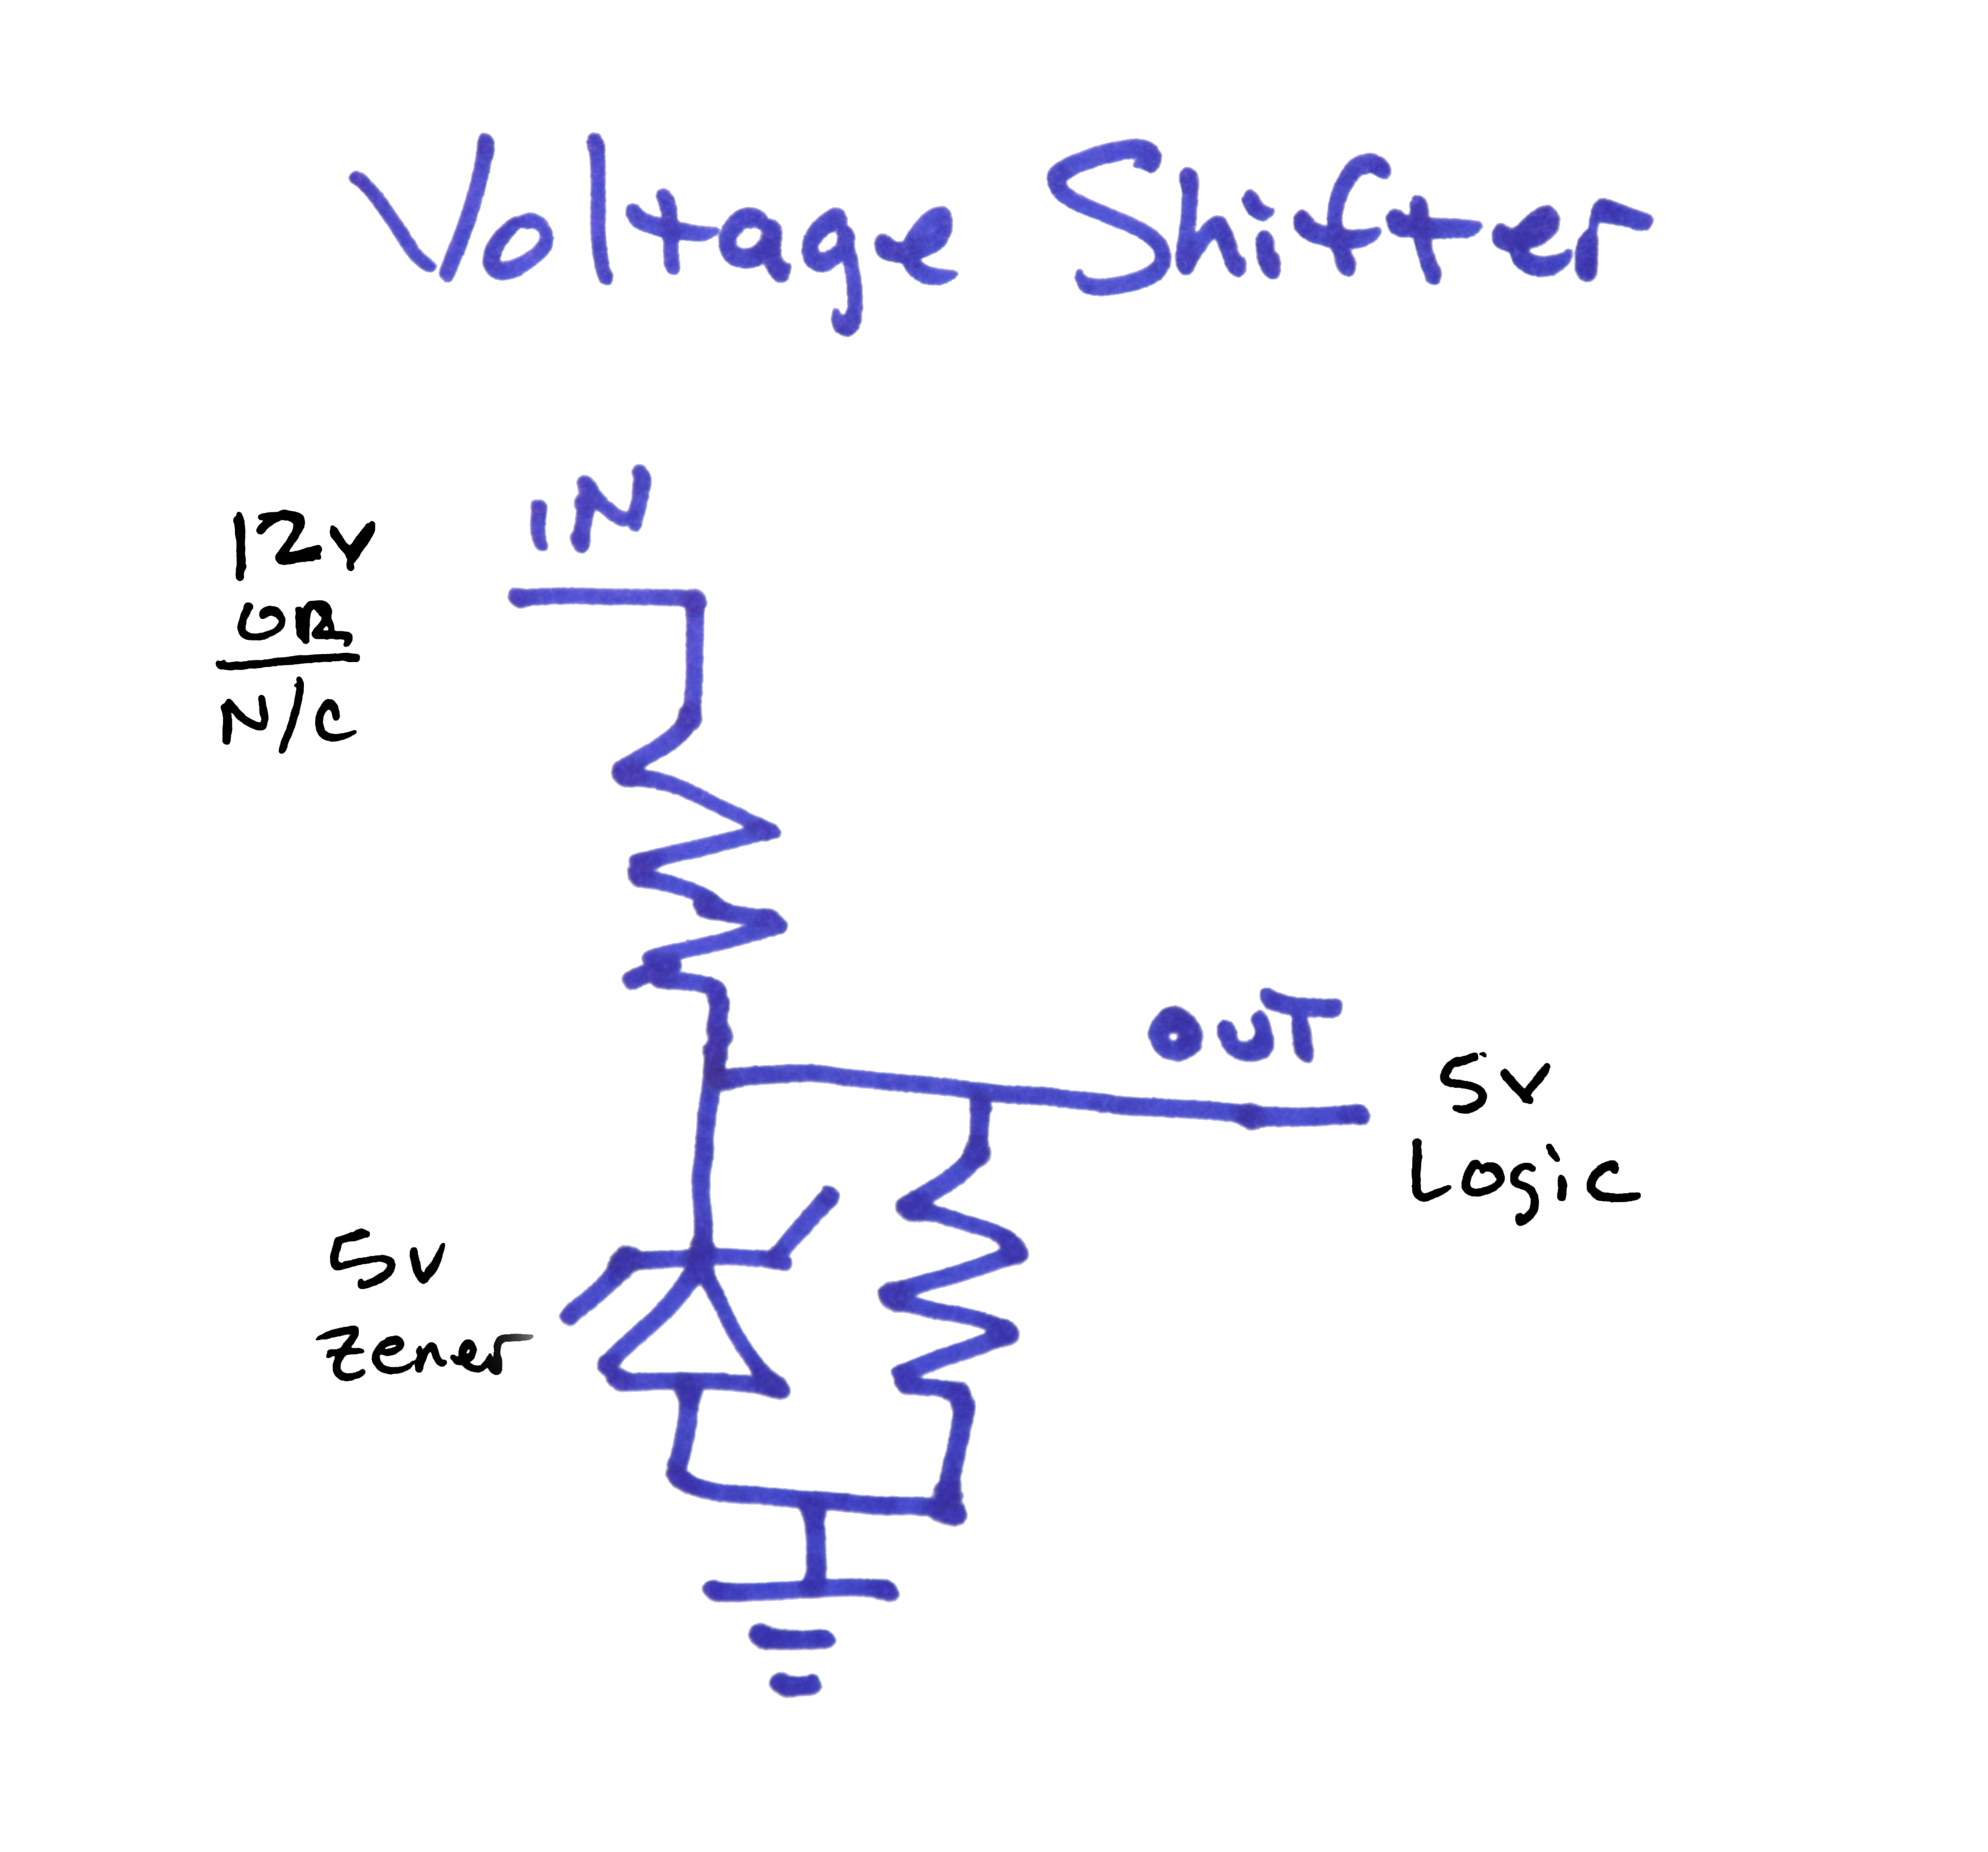 Voltage Shifter
IN
12v
OR
N/C
OUT
5v
Logic
5v
Zener